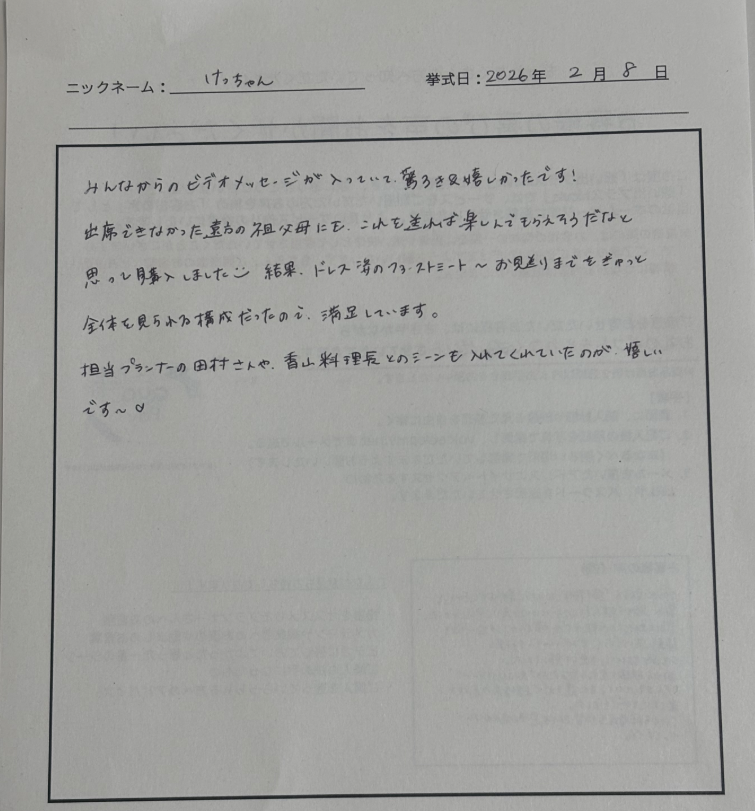 ニックネーム： けっちゃん 挙式日：2026年 2月 8日
みんなからのビデオメッセージが入っていて、驚き&嬉しかったです!
出席できなかった遠方の祖父母にも、これを送れば楽しんでもらえそうだなと
思って購入しました 結果、ドレス姿のファーストミート〜お見送りまでをぎゅっと
全体を見られる構成だったので、満足しています。
担当プランナーの田村さんや、香山料理長とのシーンを入れてくれていたのが、嬉しい
です〜♡